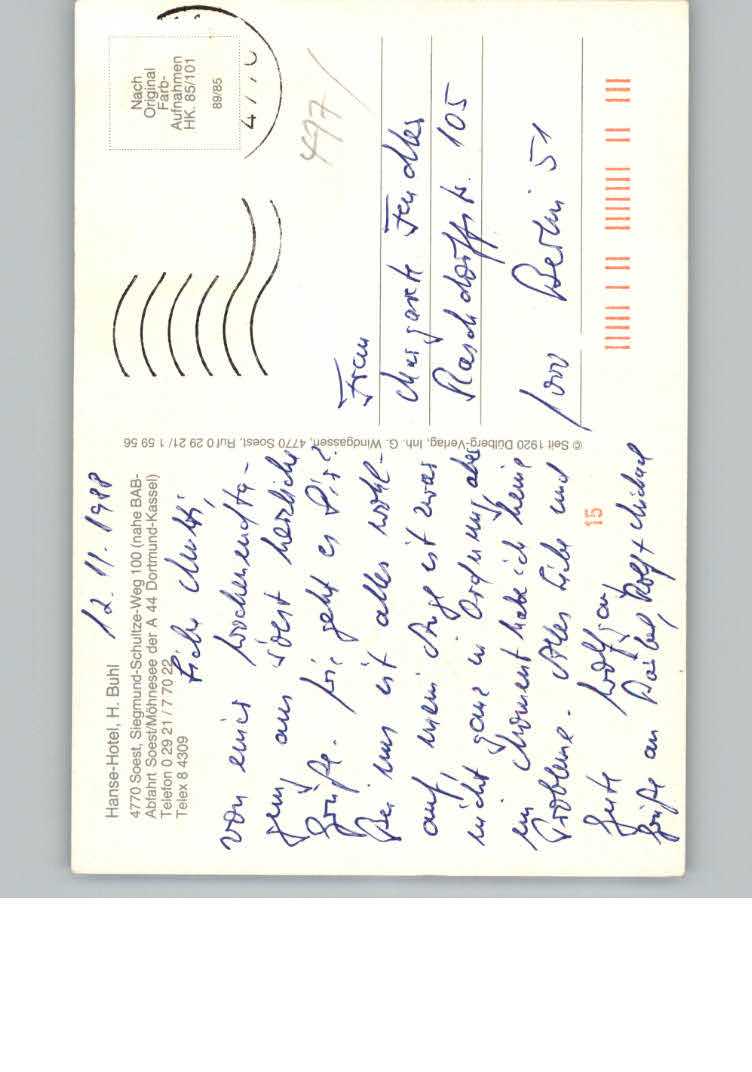 Hanse-Hotel, H. Buhl
4770 Soest, Siegmund-Schultze-Weg 100 (nahe BAB-
Abfahrt Soest/Möhnesee der A 44 Dortmund-Kassel)
Telefon 0 29 21 / 7 70 22
Telex 8 4309
12. 11. 1988
Liebe Mutti,
von einer Wochenendta-
gung aus Soest herzliche
Grüße. Wie geht es Dir?
Bei uns ist alles wohl-
auf, mein Auge ist zwar
nicht ganz in Ordnung, aber
im Moment habe ich keine
Probleme. Alles Liebe und
Gute Wolfgang
Grüße an Bärbel, Rolf + Michael
© Seit 1920 Dülberg-Verlag, Inh. G. Windgassen, 4770 Soest, Ruf 0 29 21/ 1 59 56
Nach
Original
Farb-
Aufnahmen
HK. 85/101
89/85
4770
497/
Frau
Margarete Fendler
Raschdorffstr. 105
1000 Berlin 51
15